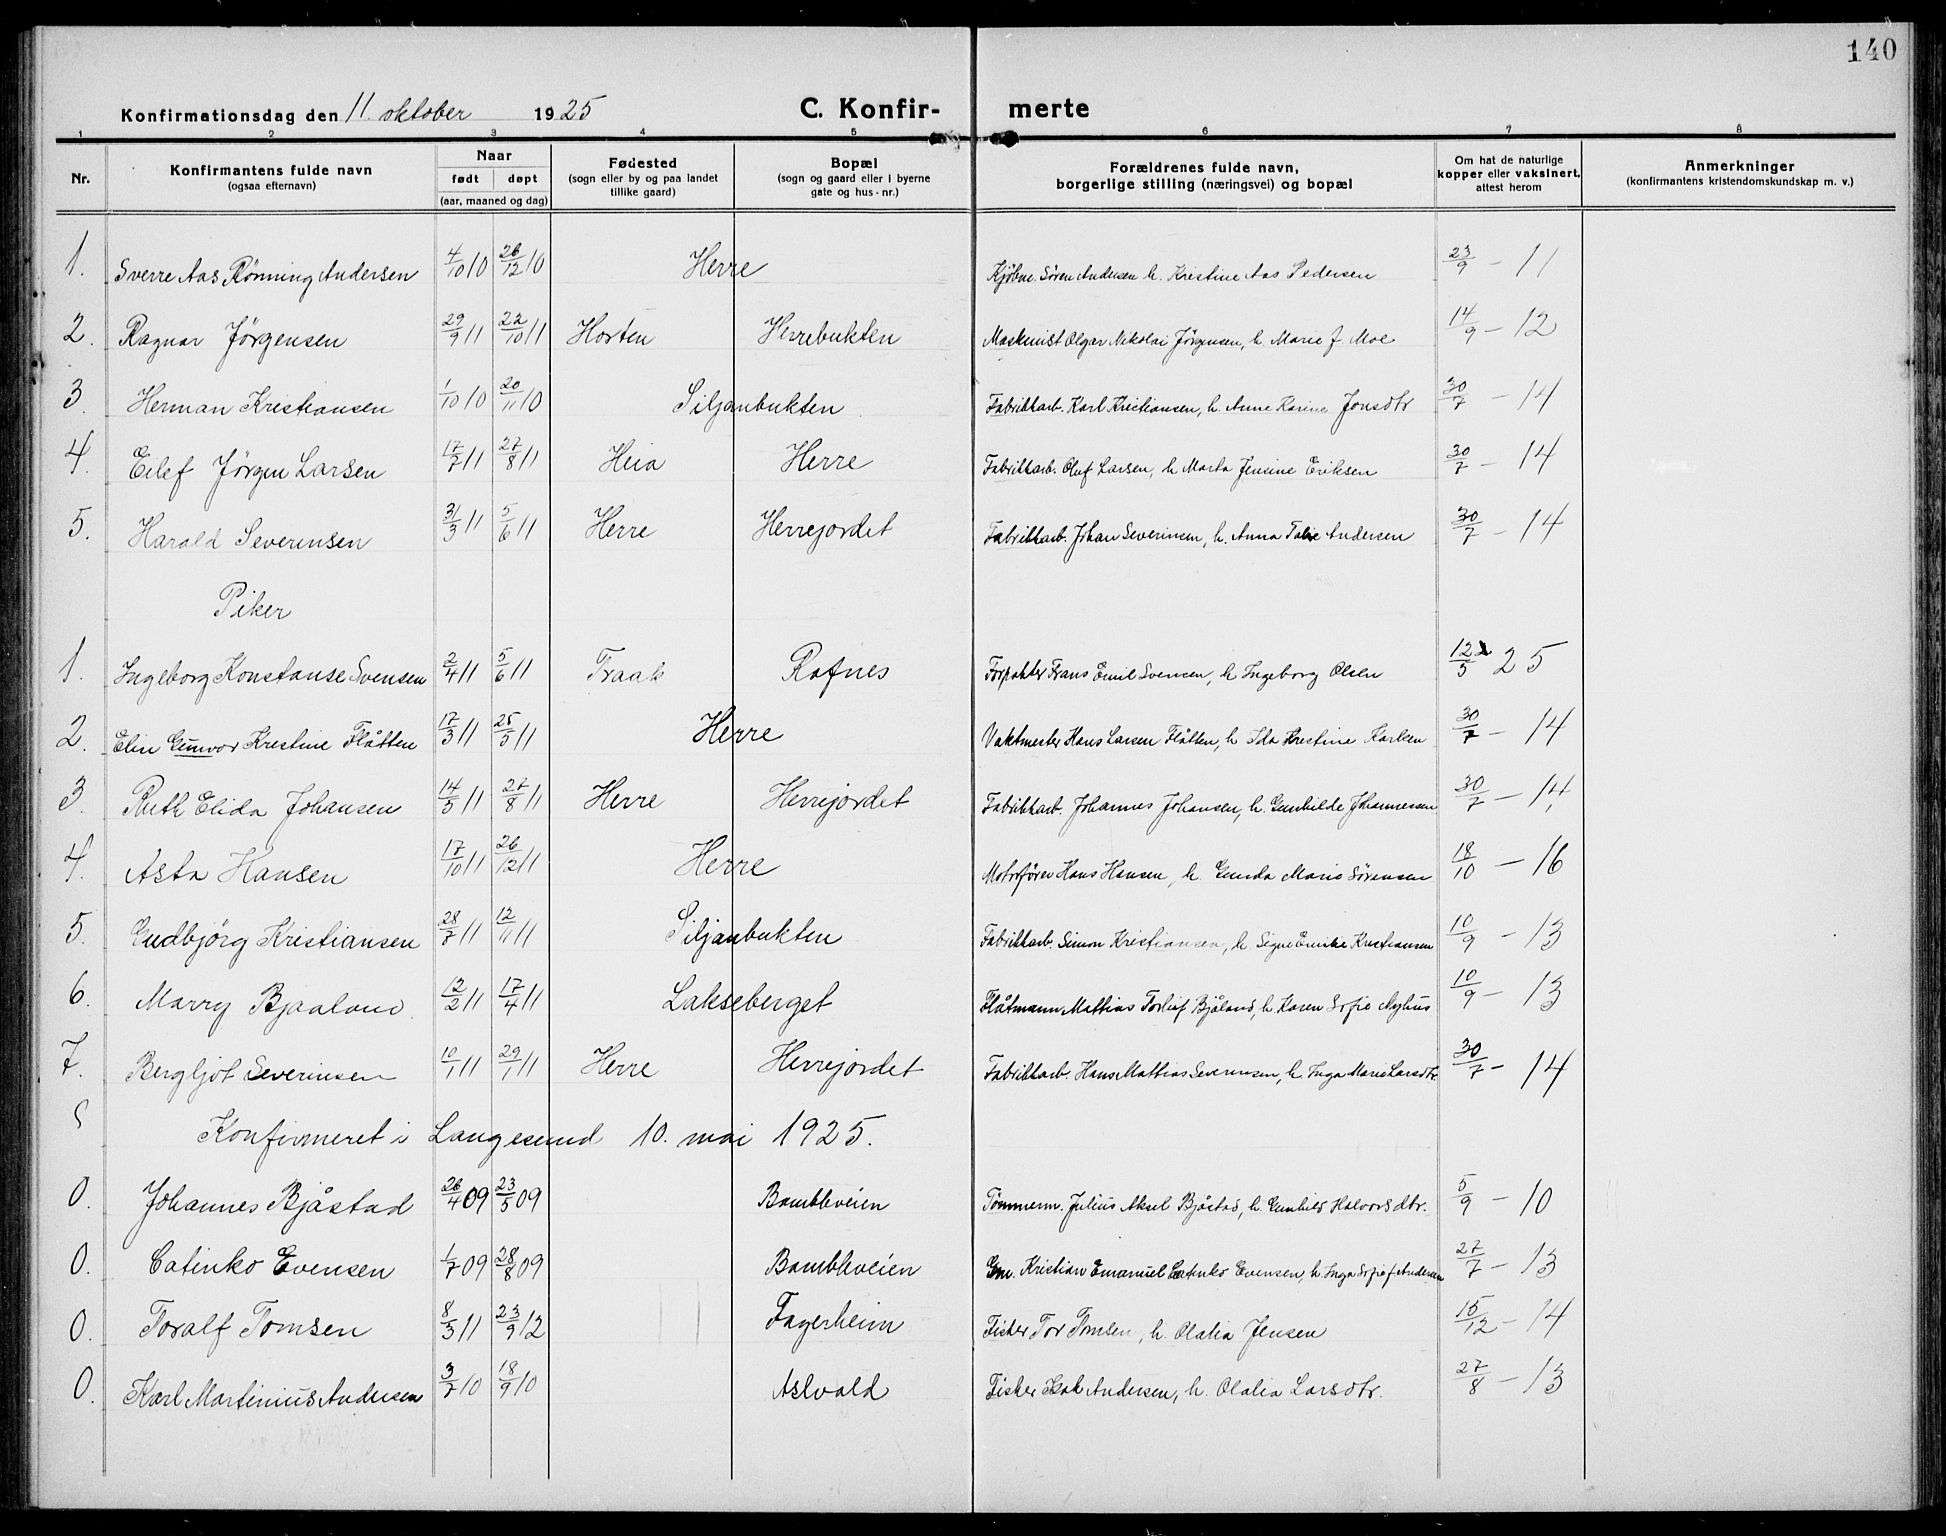 140
Konfirmationsdag den 11. oktober 1925 C. Konfir- merte
1 2 3 4 5 6 7 8
Nr. Konfirmantens fulde navn (ogsaa efternavn) Naar født døpt (aar, maaned og dag) Fødested (sogn eller by og paa landet tillike gaard) Bopæl (sogn og gaard eller i byerne gate og hus-nr.) Forældrenes fulde navn, borgerlige stilling (næringsvei) og bopæl Om hat de naturlige kopper eller vaksinert, attest herom Anmerkninger (konfirmantens kristendomskundskap m. v.)
1. Sverre Aas Rønning Andersen 4/10 10 26/12 10 Herre Kjøbm. Søren Andersen h. Kristine Aas Pedersen 23/9 - 11
2. Ragnar Jørgensen 29/9 11 22/10 11 Horten Herrebukten Maskinist Olgar Nikolai Jørgensen, h. Marie f. Moe 14/9 - 12
3. Herman Kristiansen 1/10 10 20/11 10 Siljanbukten. Fabrikkarb. Karl Kristiansen, h. Anne Karine Jonsdtr 30/7 - 14
4. Eilef Jørgen Larsen 17/7 11 27/8 11 Heia Herre Fabrikkarb. Oluf Larsen, h. Marta Jensine Eriksen 30/7 - 14
5. Harald Severinsen 31/3 11 5/6 11 Herre Herrejordet Fabrikkarb. Johan Severinsen, h. Anna Andersen 30/7 - 14
Piker
1. Ingeborg Konstanse Svensen 2/4 11 5/6 11 Traak Rafnes Forpakter Frans Emil Svensen, h. Ingeborg Olsen 12/5 25
2. Elin Gunvor Kristine Flåtten 17/3 11 25/5 11 Herre Vaktmester Hans Larsen Flåtten, h. Ida Kristine Karlsen 30/7 - 14
3. Ruth Elida Johansen 14/5 11 27/8 11 Herre Herrejordet Fabrikkarb. Johannes Johansen, h. Gunhilde Johannessen 30/7 - 14,
4. Asta Hansen 17/10 11 26/12 11 Herre Motorfører Hans Hansen, h. Gunda Marie Sørensen 18/10 - 16
5. Gudbjørg Kristiansen 28/7 11 12/11 11 Siljanbukten Fabrikkarb. Simon Kristiansen, h. Signe Emilie Kristiansen 10/9 - 13
6. Marry Bjaaland. 12/2 11 17/4 11 Lakseberget Flåtmann Mattias Torleif Bjåland, h. Karen Sofie Nyhus 10/9 - 13
7. Bergljot Severinsen 10/1 11 29/1 11 Herre Herrejordet Fabrikkarb. Hans Mattias Severinsen, h. Inga Marie Larsdtr. 30/7 - 14
Konfirmeret i Langesund 10. mai 1925.
0. Johannes Bjåstad 26/4 09 23/5 09 Bambleveien Tømmerm. Julius Aksel Bjåstad, h. Gunhild Halvorsdtr. 5/9 - 10
0. Catinko Evensen 1/7 09 28/8 09 Bambleveien Gm. Kristian Emanuel Catinko Evensen, h. Inga Sofie f. Andersen 27/7 - 13
0. Toralf Tomsen 8/3 11 23/9 12 Fagerheim Fisker Tor Tomsen, h. Olalia Jensen 15/12 - 14
0. Karl Martinius Andersen 3/7 10 18/9 10 Aslvald Fisker Isak Andersen, h. Olalia Larsdtr. 27/8 - 13